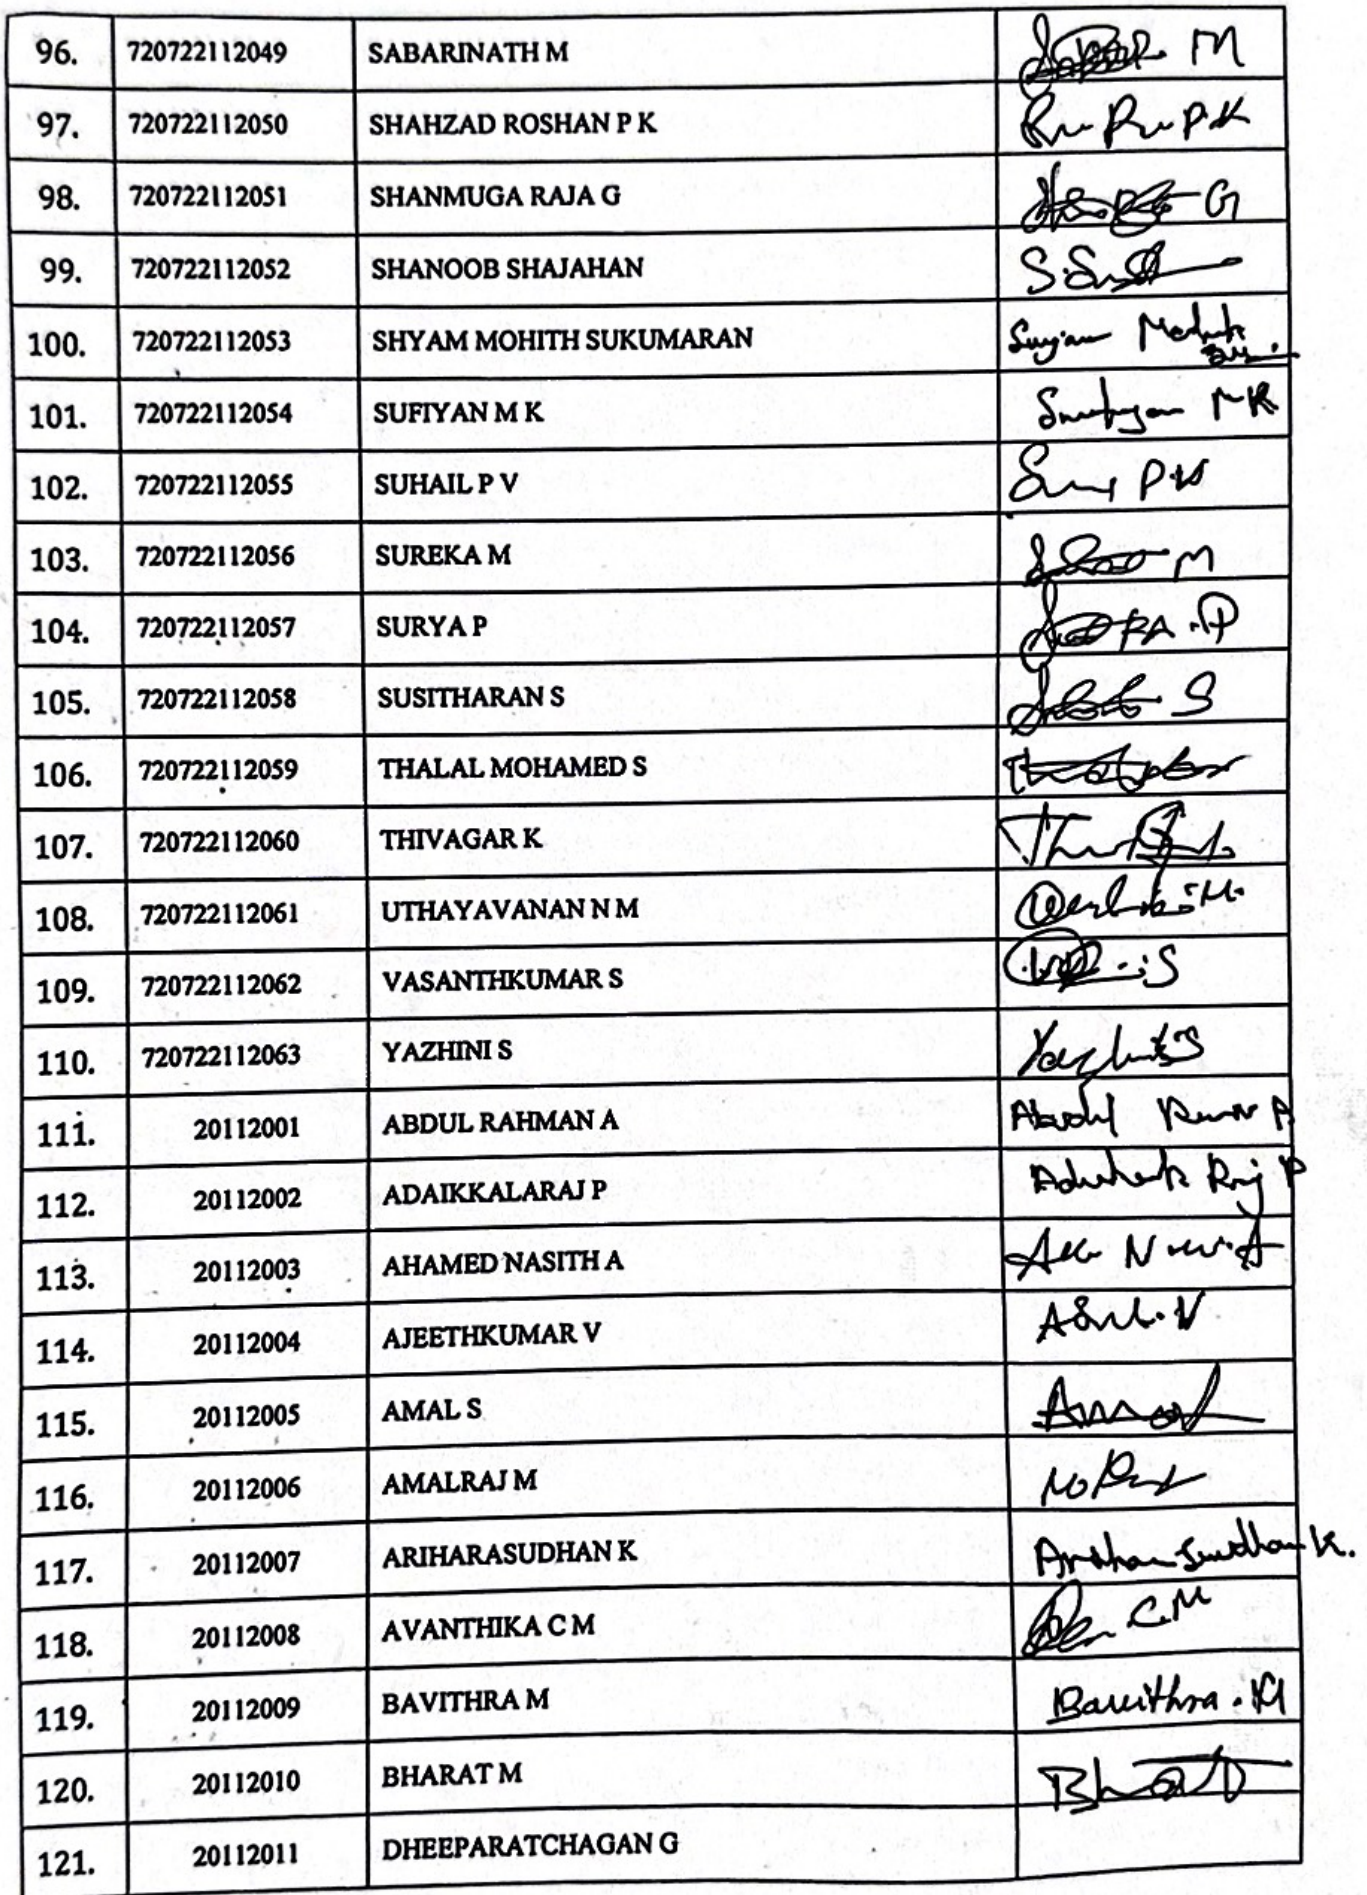 96. 720722112049 SABARINATH M
97. 720722112050 SHAHZAD ROSHAN P K P.K
98. 720722112051 SHANMUGA RAJA G G
99. 720722112052 SHANOOB SHAJAHAN
100. 720722112053 SHYAM MOHITH SUKUMARAN
101. 720722112054 SUFIYAN M K
102. 720722112055 SUHAIL P V
103. 720722112056 SUREKA M M
104. 720722112057 SURYA P P
105. 720722112058 SUSITHARAN S S
106. 720722112059 THALAL MOHAMED S
107. 720722112060 THIVAGAR K
108. 720722112061 UTHAYAVANAN N M
109. 720722112062 VASANTHKUMAR S S
110. 720722112063 YAZHINI S
111. 20112001 ABDUL RAHMAN A
112. 20112002 ADAIKKALARAJ P
113. 20112003 AHAMED NASITH A
114. 20112004 AJEETHKUMAR V
115. 20112005 AMAL S
116. 20112006 AMALRAJ M
117. 20112007 ARIHARASUDHAN K
118. 20112008 AVANTHIKA C M C.M
119. 20112009 BAVITHRA M Bavithra.M
120. 20112010 BHARAT M
121. 20112011 DHEEPARATCHAGAN G